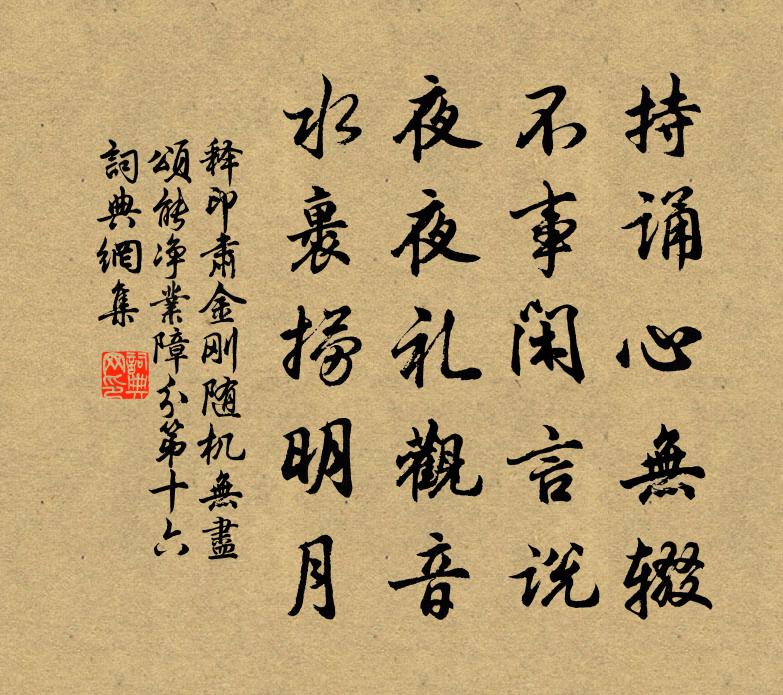 持诵心無辍
不事閑言说
夜夜礼觀音
水裏捞明月
释印肃金刚随机無盡
頌能净業障分第十六
詞典網集
詞典
网